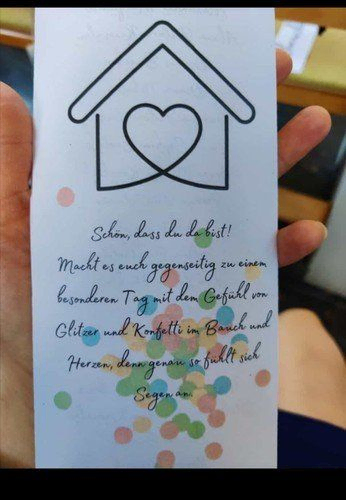 Schön, dass du da bist!
Macht es euch gegenseitig zu einem
besonderen Tag mit dem Gefühl von
Glitzer und Konfetti im Bauch und
Herzen, denn genau so fühlt sich
Segen an.